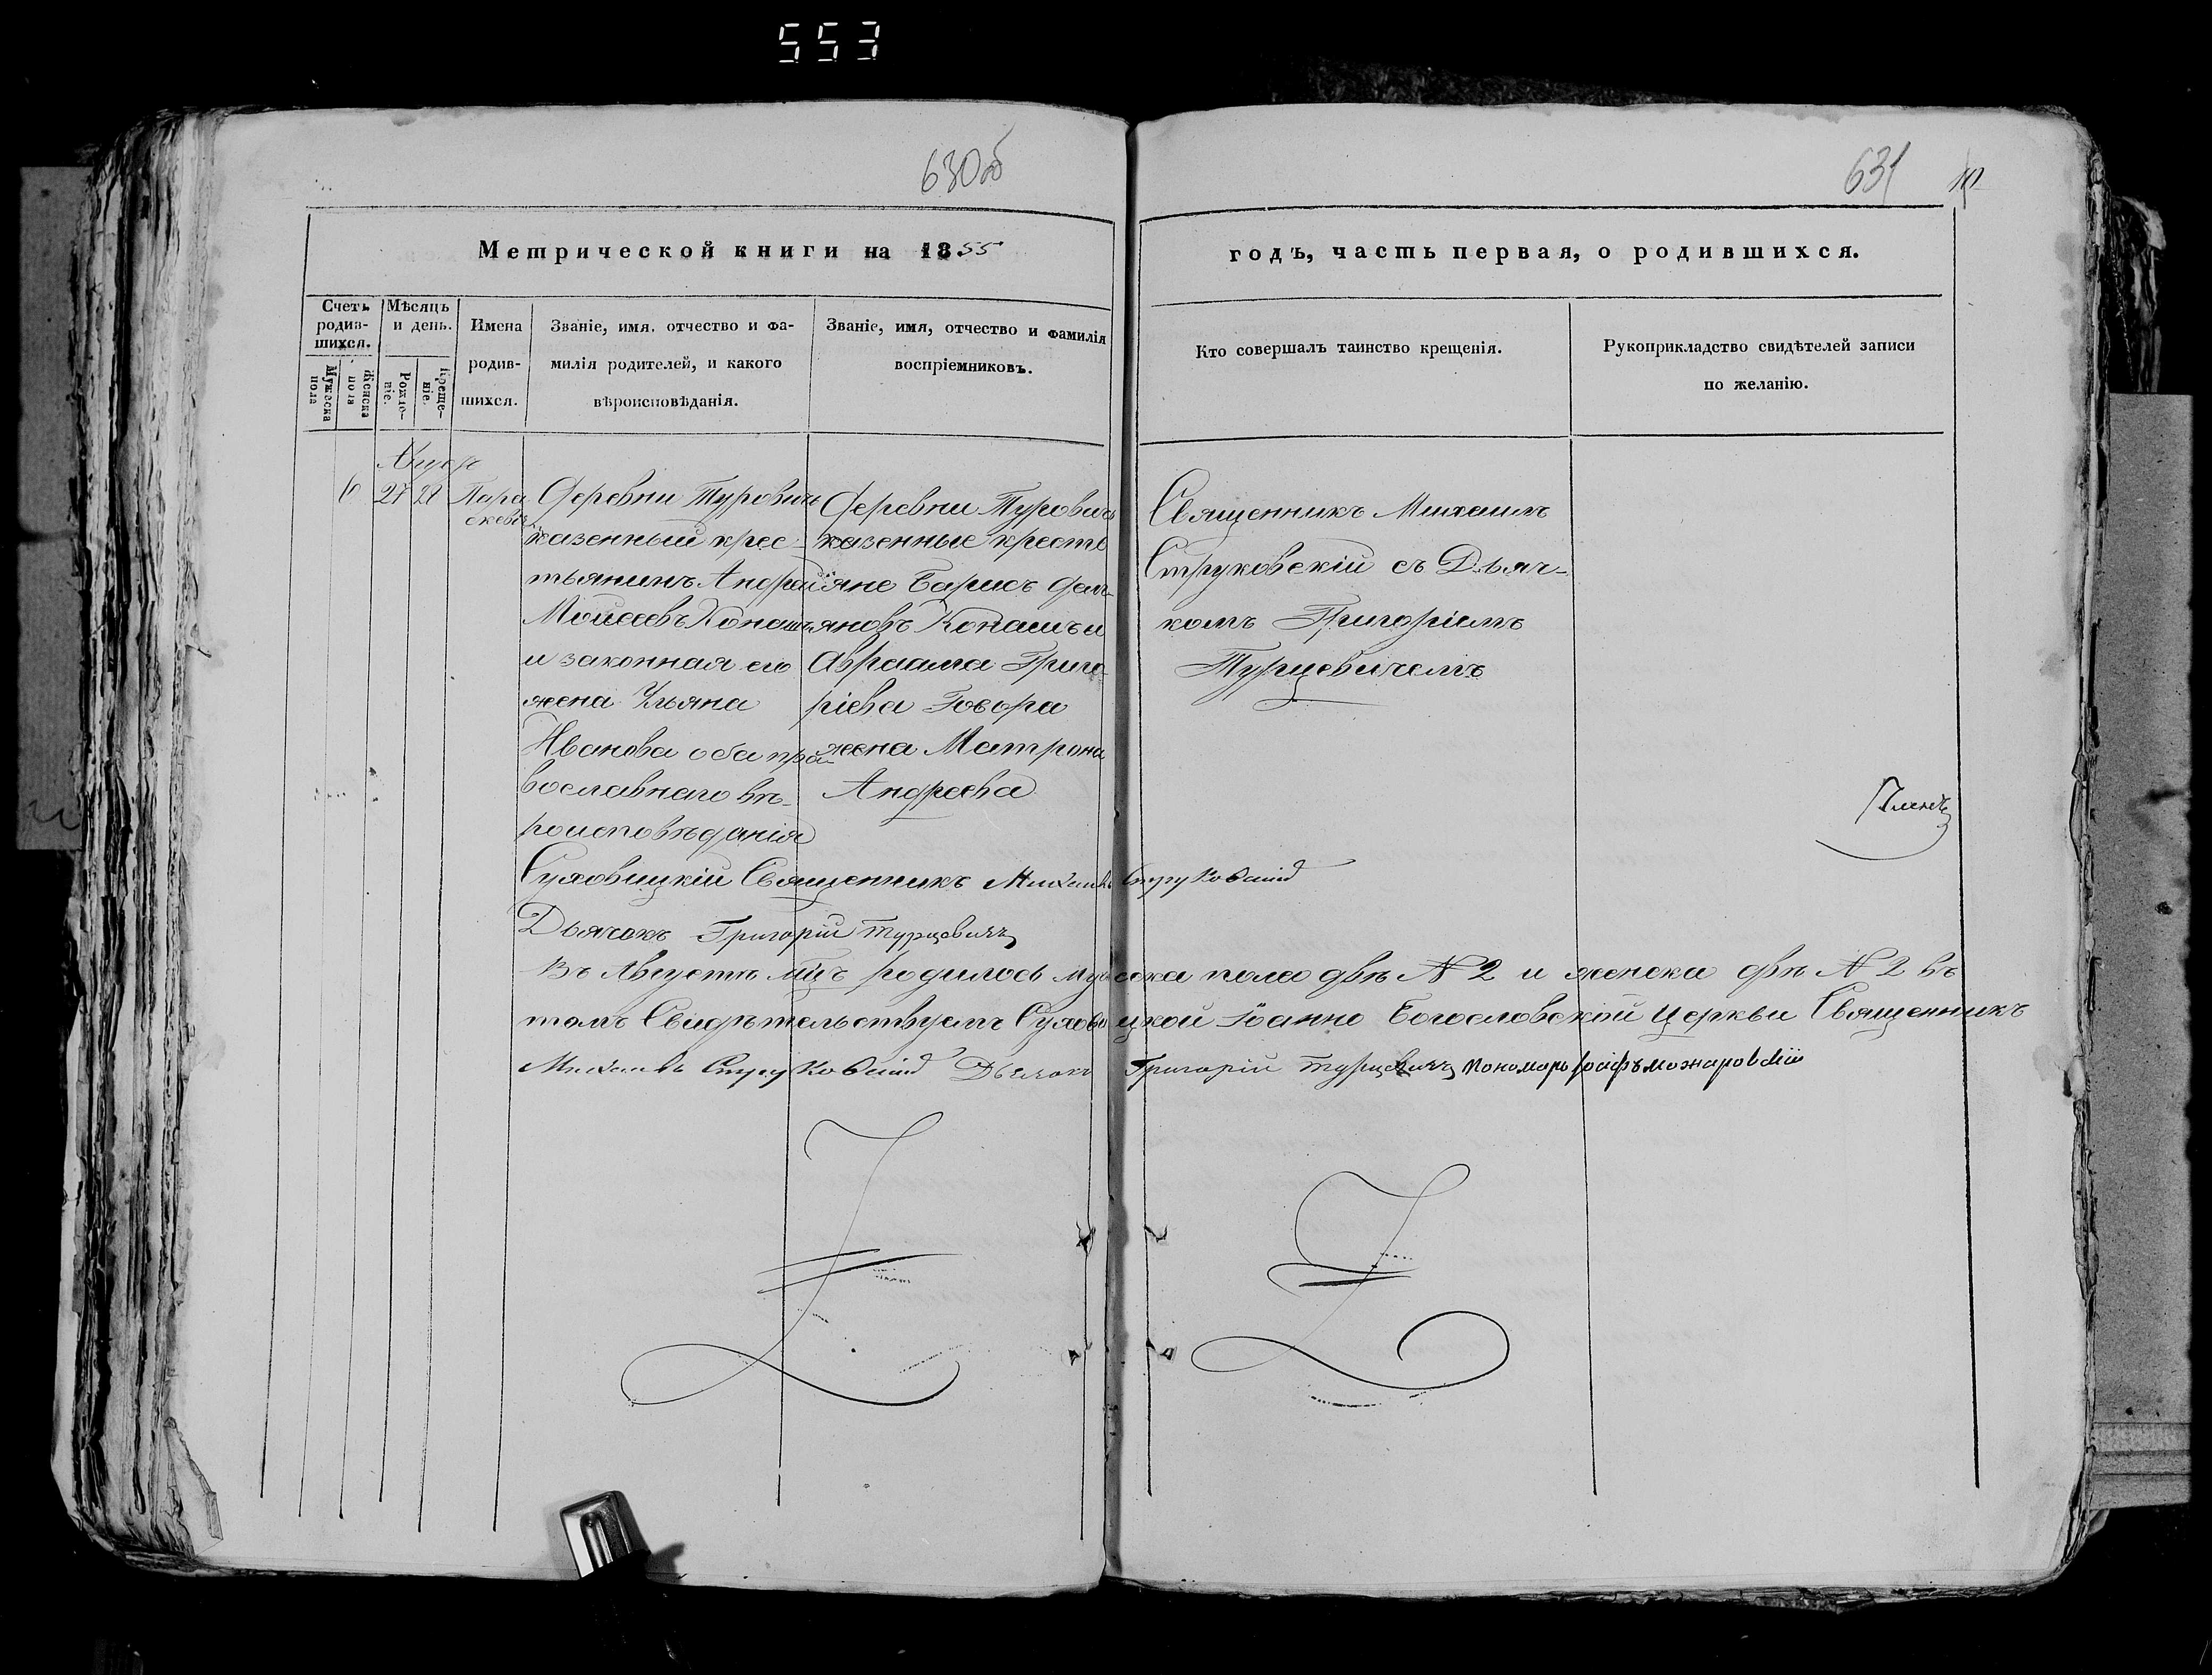 553
630об
631
Метрической книги на 1855
годъ, часть первая, о родившихся.
Счетъ родив-шихся.
Мужеска пола
Женска пола
Мѣсяцъ и день.
Рожде-ніе.
Креще-ніе.
Имена родив-шихся.
Званіе, имя, отчество и фа-
милія родителей, и какого
вѣроисповѣданія.
Званіе, имя, отчество и фамилія
воспріемниковъ.
Кто совершалъ таинство крещенія.
Рукоприкладство свидѣтелей записи
по желанію.
6
27 28
Пара
скевія
Деревни Туровичъ
казенный крес-
тьянинъ Андрей
Моисеевъ Конашъ
и законная его
жена Ульяна
Иванова оба пра-
вославнаго вѣ-
роисповѣданія
Деревни Туровичъ
казенные кресть
яне Барисъ Дем-
яновъ Конашъ и
Авраама Григо-
ріева Говора
жена Матрона
Андреева
Священникъ Михаилъ
Струковскій съ Дьяч-
комъ Григоріемъ
Турцевичемъ
Суховицкій Священникъ Михаилъ Струковскій
Дьячокъ Григорій Турцевичъ
Въ Августѣ мцѣ родилось мужеска пола двѣ N 2 и женска двѣ N 2 въ
томъ Свидѣтельствуемъ Суховицкой Іоанно Богословской Церкви Священникъ
Михаилъ Струковскій Дьячокъ Григорій Турцевичъ Пономарь Іосифъ Можаровскій